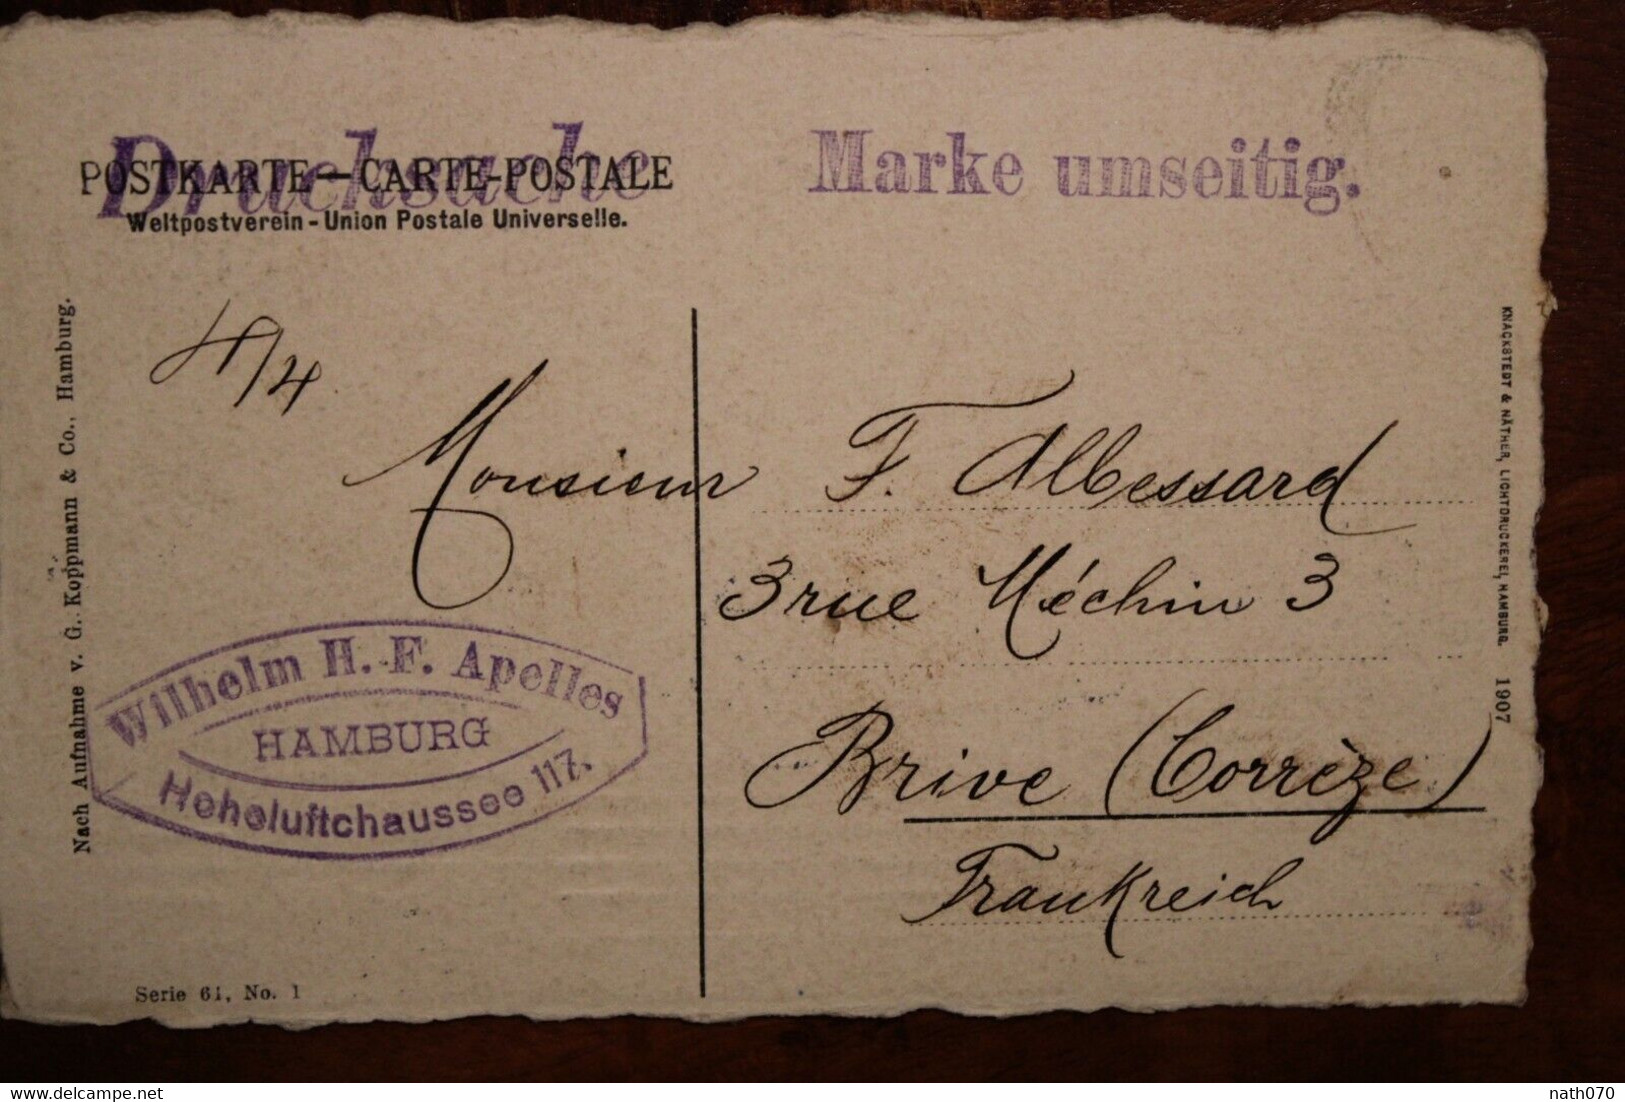 Drucksache
POSTKARTE—CARTE-POSTALE
Weltpostverein - Union Postale Universelle.
Marke umseitig.
Nach Aufnahme v. G. Koppmann & Co., Hamburg.
Monsieur F. Albessard
3 rue Méchin 3
Brive (Corrèze)
Frankreich
Wilhelm H. F. Apelles
HAMBURG
Hoheluftchaussee 117.
KNACKSTEDT & NÄTHER, LICHTDRUCKEREI, HAMBURG. 1907
Serie 61, No. 1
delcampe.net
nath070